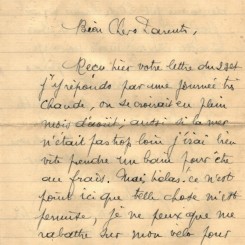 Bien Chers Parents,
Reçu hier votre lettre du
j'y réponds par une journée très
chaude, on se croirait en plein
mois d'août; aussi si la mer
n'était pas trop loin j'irai bien
vite prendre un bain pour être
au frais. Mais hélas! ce n'est
point ici que telle chose m'est
permise, je ne peux que me
rabattre sur mon vélo pour